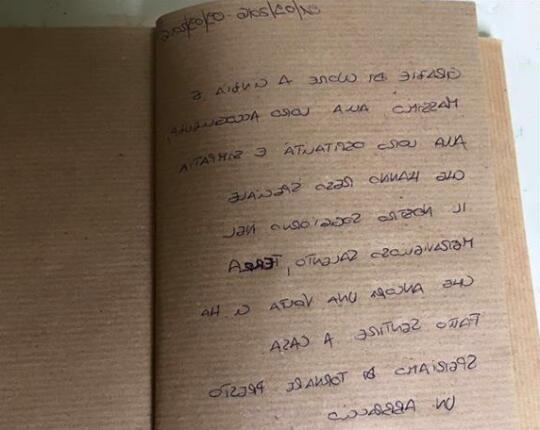 GRAZIE DI CUORE A CINZIA E
MASSIMO ALLA LORO ACCOGLIENZA,
ALLA LORO OSPITALITÀ E SIMPATIA
CHE HANNO RESO SPECIALE
IL NOSTRO SOGGIORNO NEL
MERAVIGLIOSO SALENTO, TERRA
CHE ANCORA UNA VOLTA CI HA
FATTO SENTIRE A CASA
SPERIAMO DI TORNARE PRESTO
UN ABBRACCIO